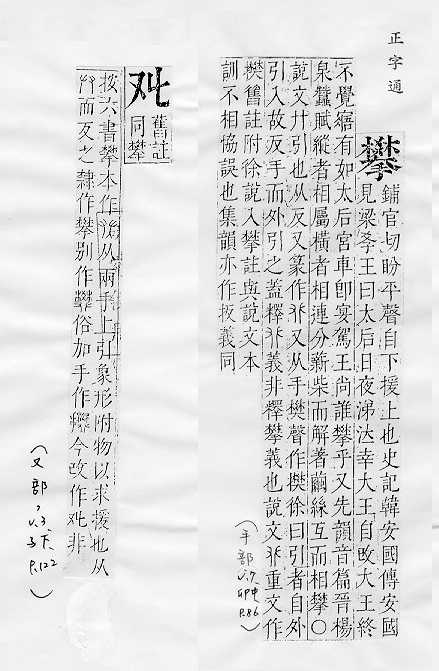 正字通
攀
鋪官切盼平聲自下援上也史記韓安國傳安國
見梁孝王曰太后日夜涕泣幸大王自改大王終
不覺寤有如太后宮車卽宴駕王尚誰攀乎又先韻音篇晉楊
泉蠶賦縱者相屬橫者相連分薪柴而解著繭絲互而相攀〇
說文𠬜引也从反又篆作𠬜又从手樊聲作樊徐曰引者自外
引入故反手而外引之蓋釋𠬜義非釋攀義也說文𠬜重文作
樊舊註附徐說入攀註與說文本
訓不相恊誤也集韻亦作扳義同
(手部,
v.7
卯中
P.86)
舊註
同攀
按六書攀本作 从兩手上引象形附物以求援也从
𠬜而反之隸作攀别作 俗加手作 今改作 非
(又部,
v.3
P.122)